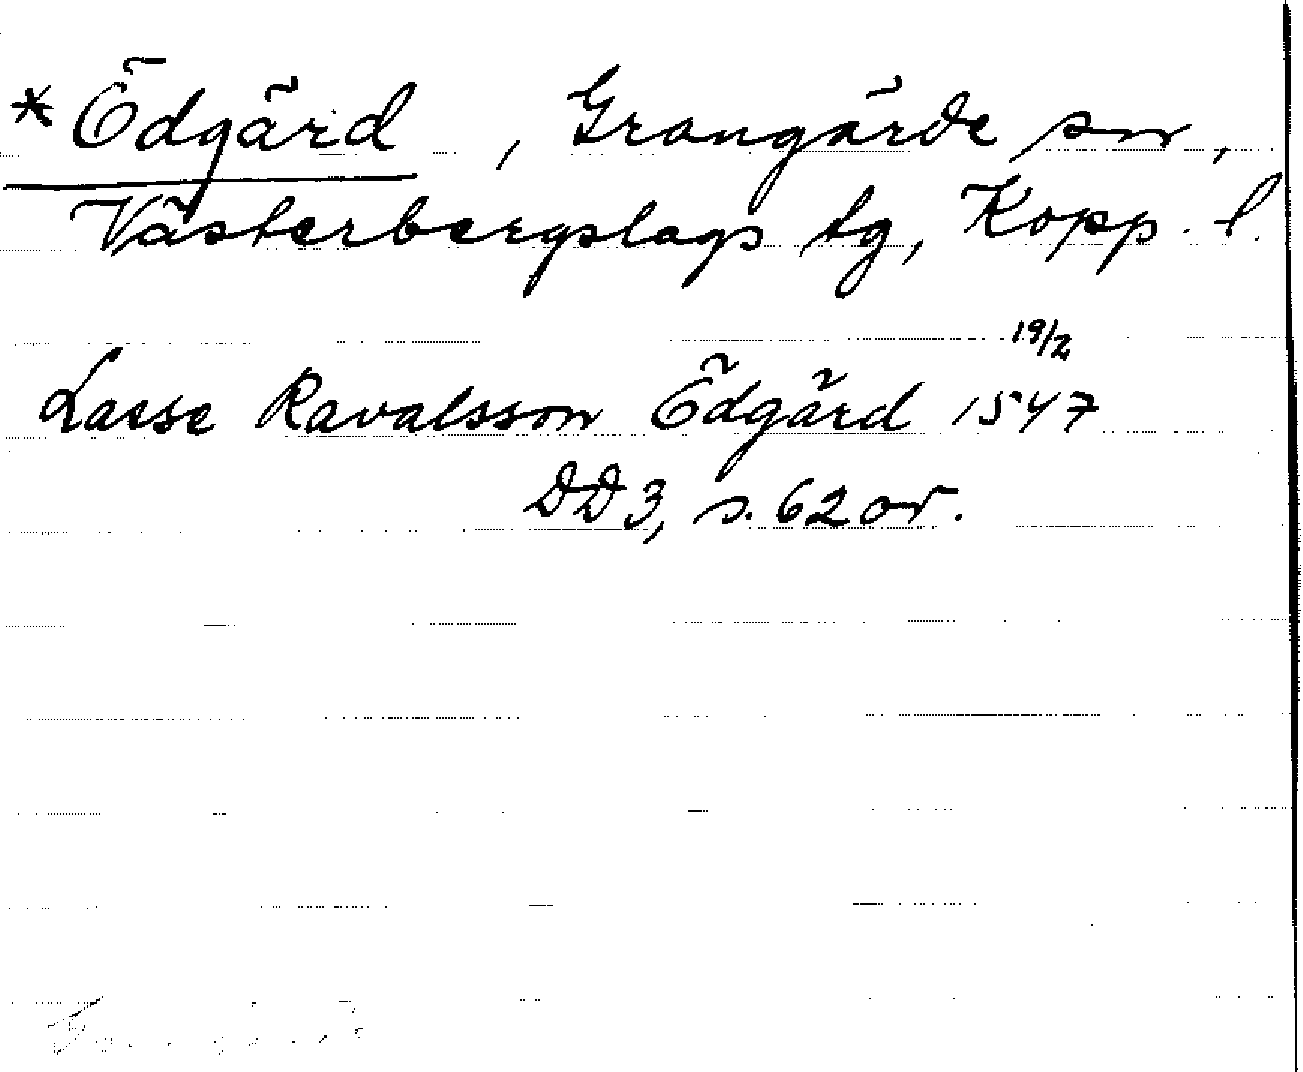 *Ödgärd, Grangärde sn,
Västerbergslags tg, Kopp. l.
19/2
Lasse Ravalsson Ödgärd 1547
DD3, s. 62 ov.